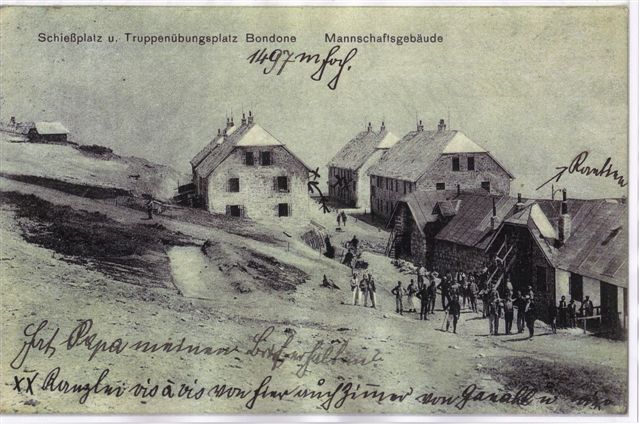 Schießplatz u. Truppenübungsplatz Bondone Mannschaftsgebäude
1497 m hoch.
Kantine
Hat Papa meinen Brief erhalten?
XX Kanzlei vis à vis von hier auch Zimmer von u